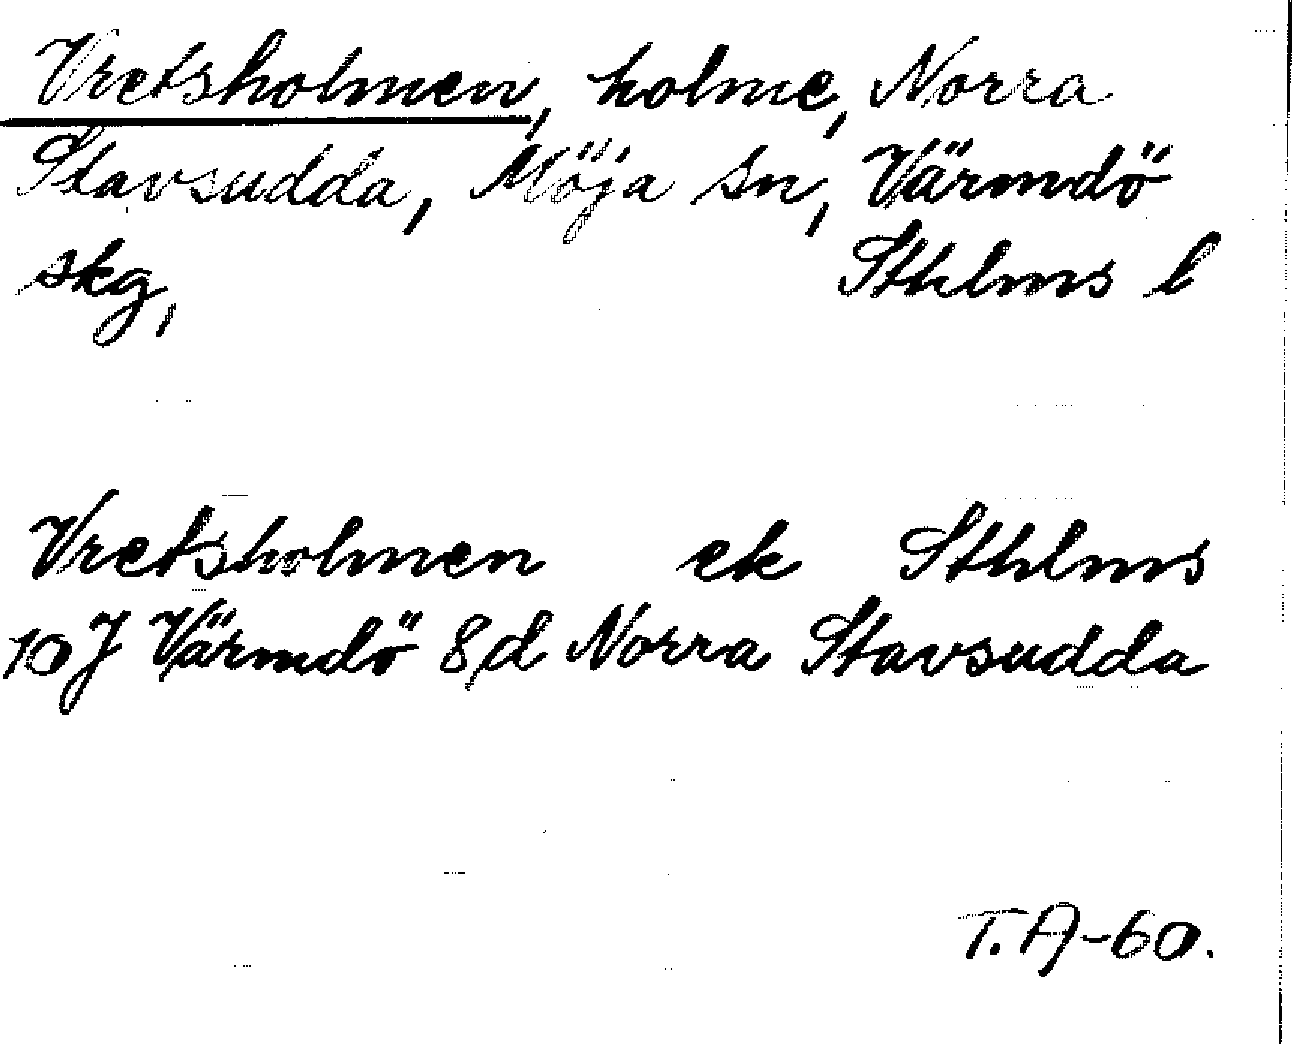 Vretsholmen, holme, Norra
Stavsudda, Möja sn, Värmdö
skg, Sthlms l
Vretsholmen ek Sthlms
10 J Värmdö 8d Norra Stavsudda
T.A-60.